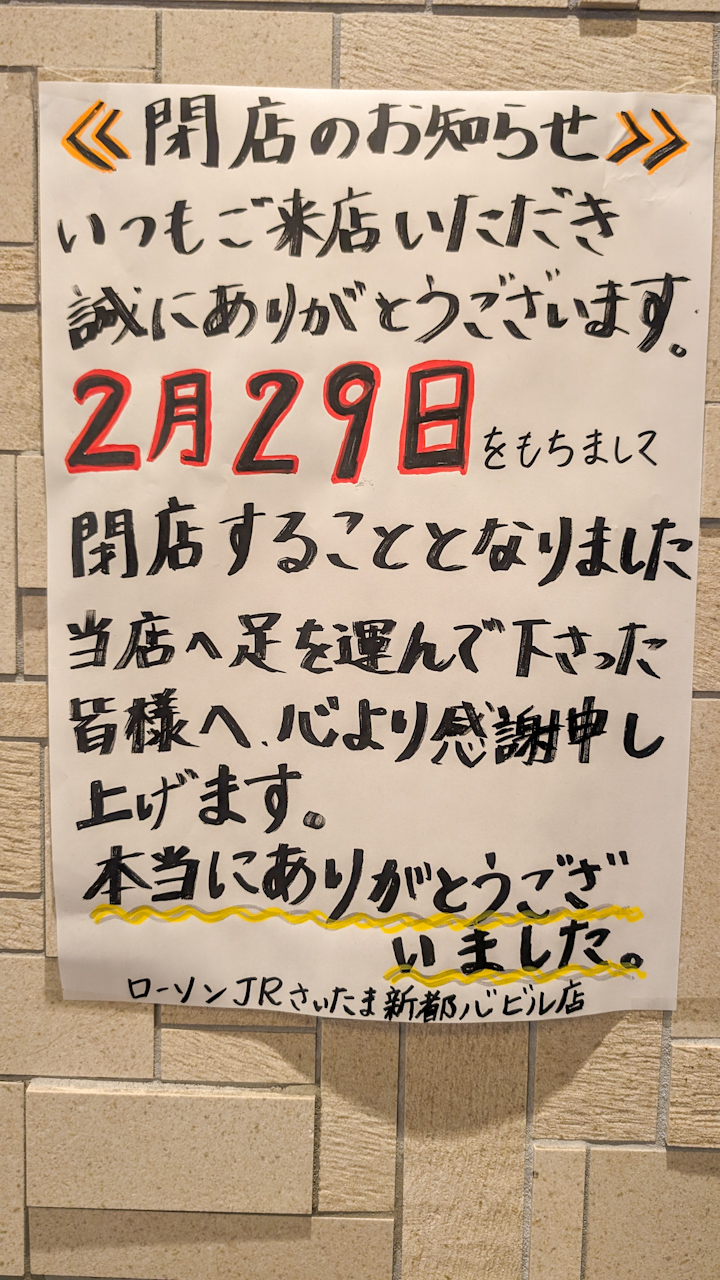 ≪閉店のお知らせ≫
いつもご来店いただき
誠にありがとうございます。
2月29日をもちまして
閉店することとなりました
当店へ足を運んで下さった
皆様へ、心より感謝申し
上げます。
本当にありがとうござ
いました。
ローソンJRさいたま新都心ビル店